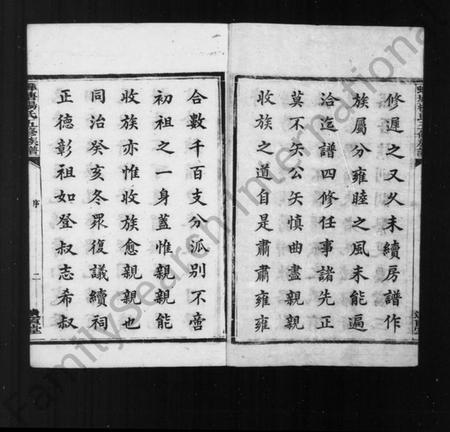 修遲之又久未續房譜作
族屬分雍睦之風未能遍
洽迄譜四修任事諸先正
莫不矢公矢慎曲盡親親
收族之道自是肅肅雍雍
合數千百支分派別不啻
初祖之一身蓋惟親親能
收族亦惟收族愈親親也
同治癸亥冬眾復議續祠
正德彰祖如登叔志希叔
楊氏五修族譜
序
二
FamilySearch International